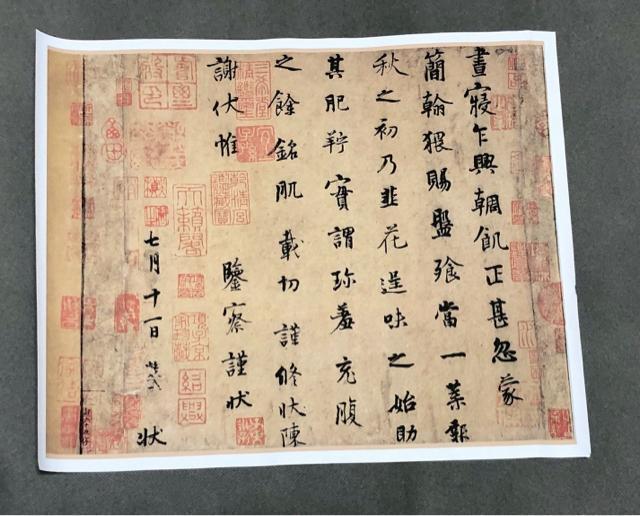 晝寢乍興輖飢正甚忽蒙
簡翰猥賜盤飧當一葉報
秋之初乃韭花逞味之始助
其肥羜實謂珍羞充腹
之餘銘肌載切謹修狀陳
謝伏惟 鑒察謹狀
七月十一日 狀
三希堂精鑑璽
宜子孫
天籟閣